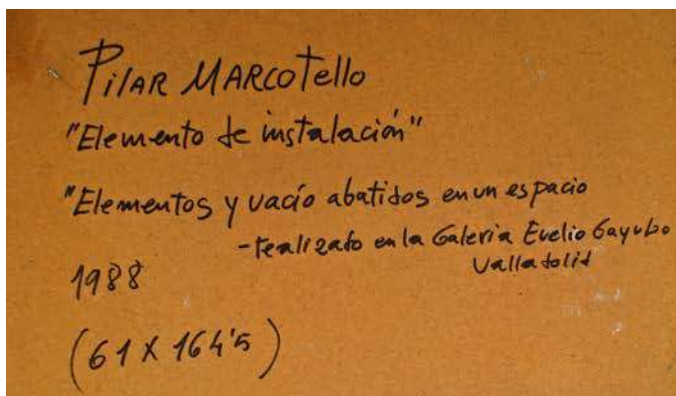 PilAR MARCOTello
"Elemento de instalación"
"Elementos y vacío abatidos en un espacio
- realizado en la Galeria Evelio Gayubo
Valladolid
1988
(61 X 164'5)